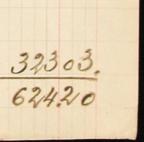 32303.
62420